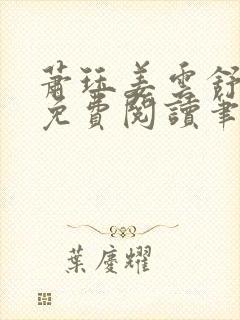 蕭珏姜雲舒
免費閱讀筆
葉慶耀